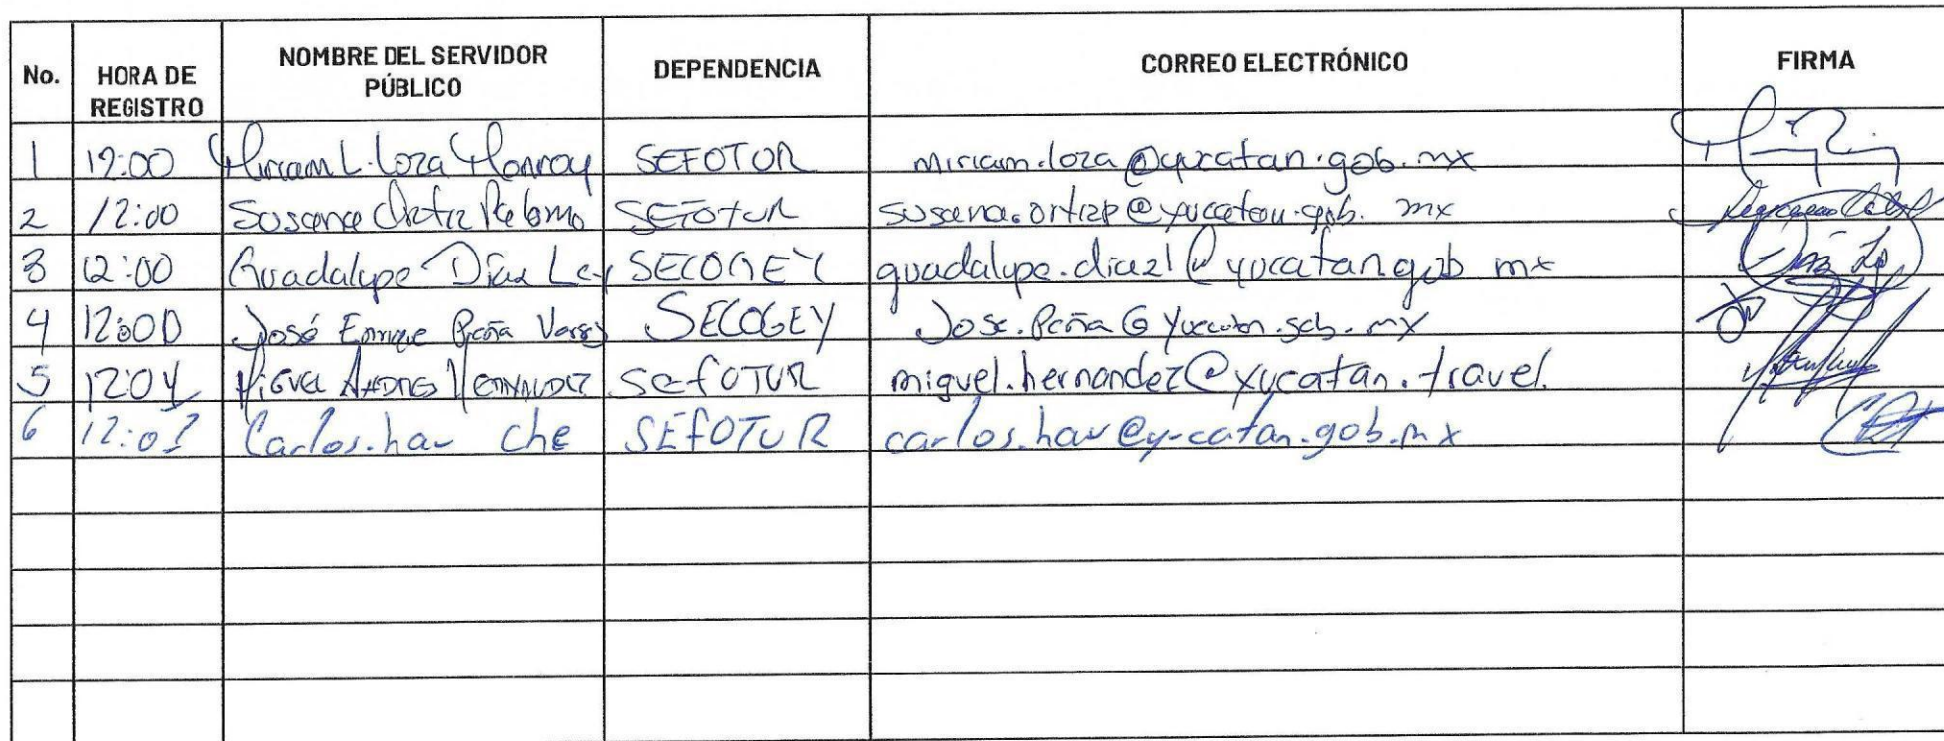 No. HORA DE REGISTRO NOMBRE DEL SERVIDOR PÚBLICO DEPENDENCIA CORREO ELECTRÓNICO FIRMA
1 12:00 Miriam L. Loza Monroy SEFOTUR miriam.loza@yucatan.gob.mx
2 12:00 Susana Ortiz Palomo SEFOTUR susana.ortizp@yucatan.gob.mx
3 12:00 Guadalupe Díaz Ley SECOGEY guadalupe.diazl@yucatan.gob mx
4 12:00 José Enrique Peña Vargas SECOGEY Jose.Peña@yucatan.gob.mx
5 12:04 Miguel Andres Hernandez SefOTUR miguel.hernandez@yucatan.travel.
6 Carlos.hau che SEfOTUR carlos.hau@yucatan.gob.mx